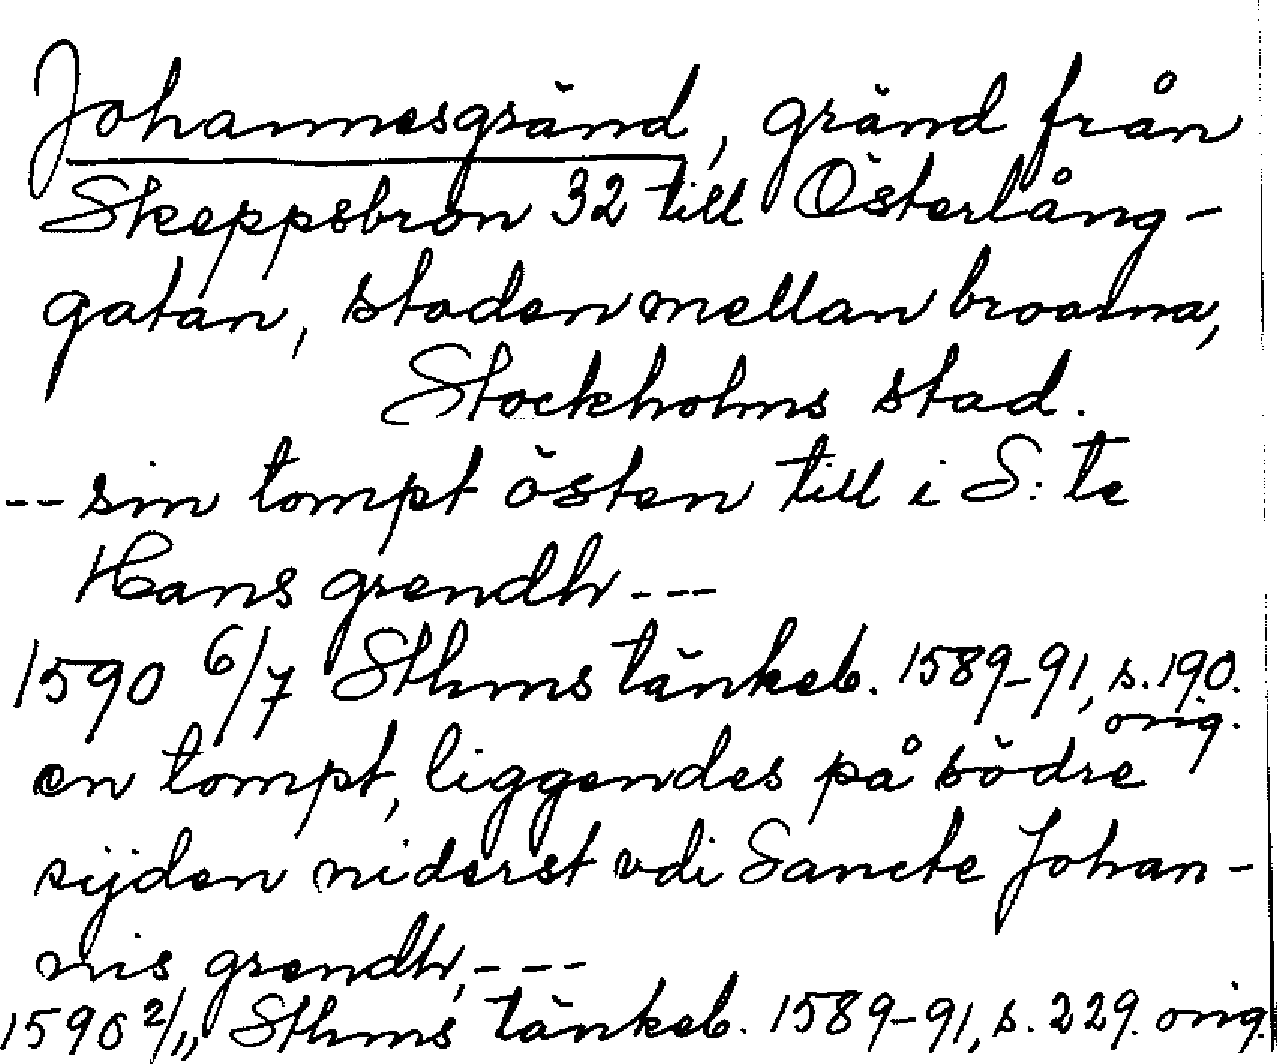 Johannesgränd, gränd från
Skeppsbron 32 till Österlång-
gatan, staden mellan broarna,
Stockholms stad.
-- sin tompt östen till i S:te
Hans grendh ---
1590 6/7 Sthms tänkeb. 1589-91, s. 190.
orig.
en tompt, liggendes på södre
sijden niderst vdi Sancte Johan-
nis grendh, ---
1590 2/11 Sthms tänkeb. 1589-91, s. 229. orig.